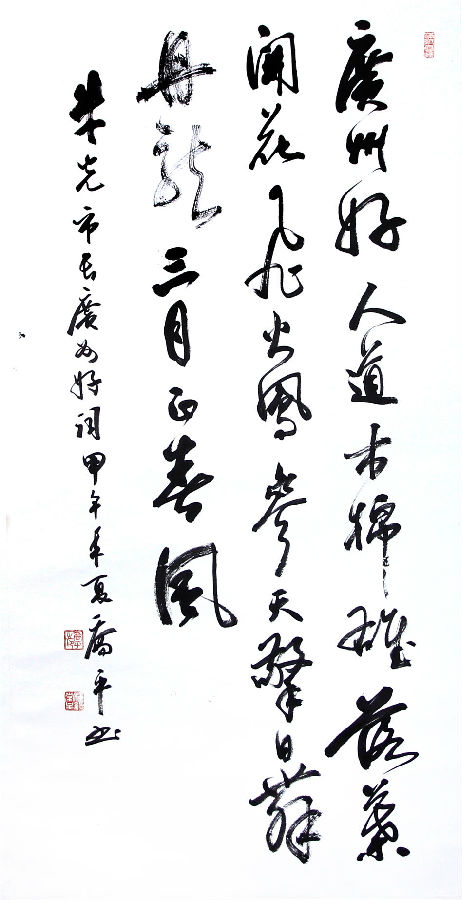 廣州好人道木棉雄落葉
開花飛火鳳參天擎日舞
丹龍三月正春風
朱光市長廣州好詞甲午年夏喬平书